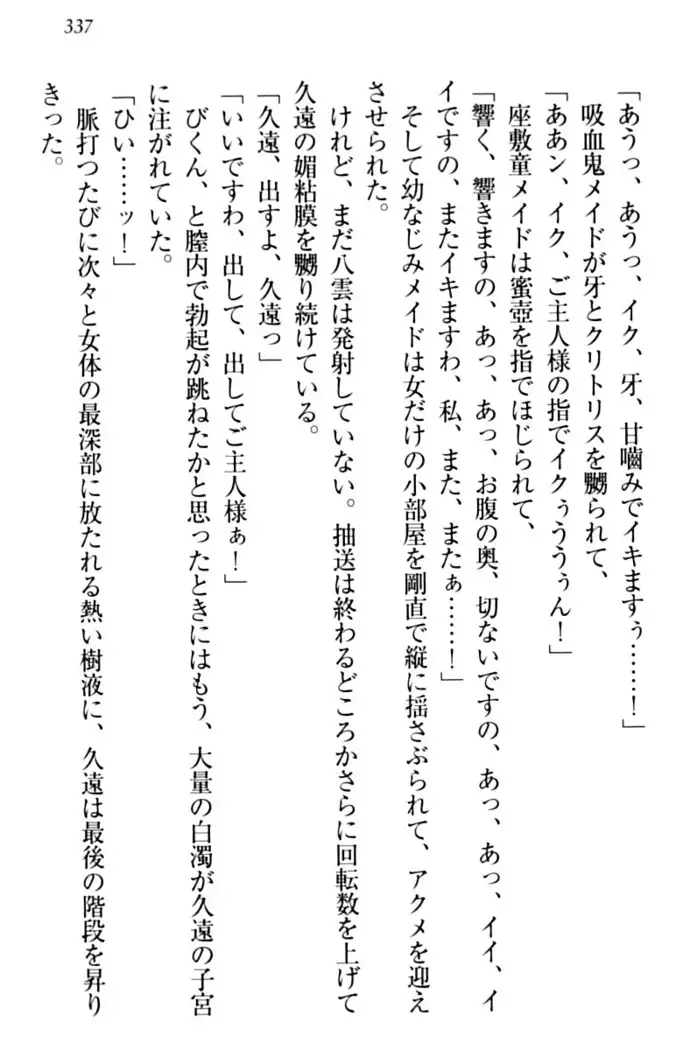 337
「あうっ、あうっ、イク、牙、甘嚙みでイキますぅ……！」
吸血鬼メイドが牙とクリトリスを嬲られて、
「ああン、イク、ご主人様の指でイクぅううぅん！」
座敷童メイドは蜜壺を指でほじられて、
「響く、響きますの、あっ、あっ、お腹の奥、切ないですの、あっ、あっ、イイ、イ
イですの、またイキますわ、私、また、またぁ……！」
そして幼なじみメイドは女だけの小部屋を剛直で縦に揺さぶられて、アクメを迎え
させられた。
けれど、まだ八雲は発射していない。抽送は終わるどころかさらに回転数を上げて
久遠の媚粘膜を嬲り続けている。
「久遠、出すよ、久遠っ」
「いいですわ、出して、出してご主人様ぁ！」
びくん、と膣内で勃起が跳ねたかと思ったときにはもう、大量の白濁が久遠の子宮
に注がれていた。
「ひい……ッ！」
脈打つたびに次々と女体の最深部に放たれる熱い樹液に、久遠は最後の階段を昇り
きった。